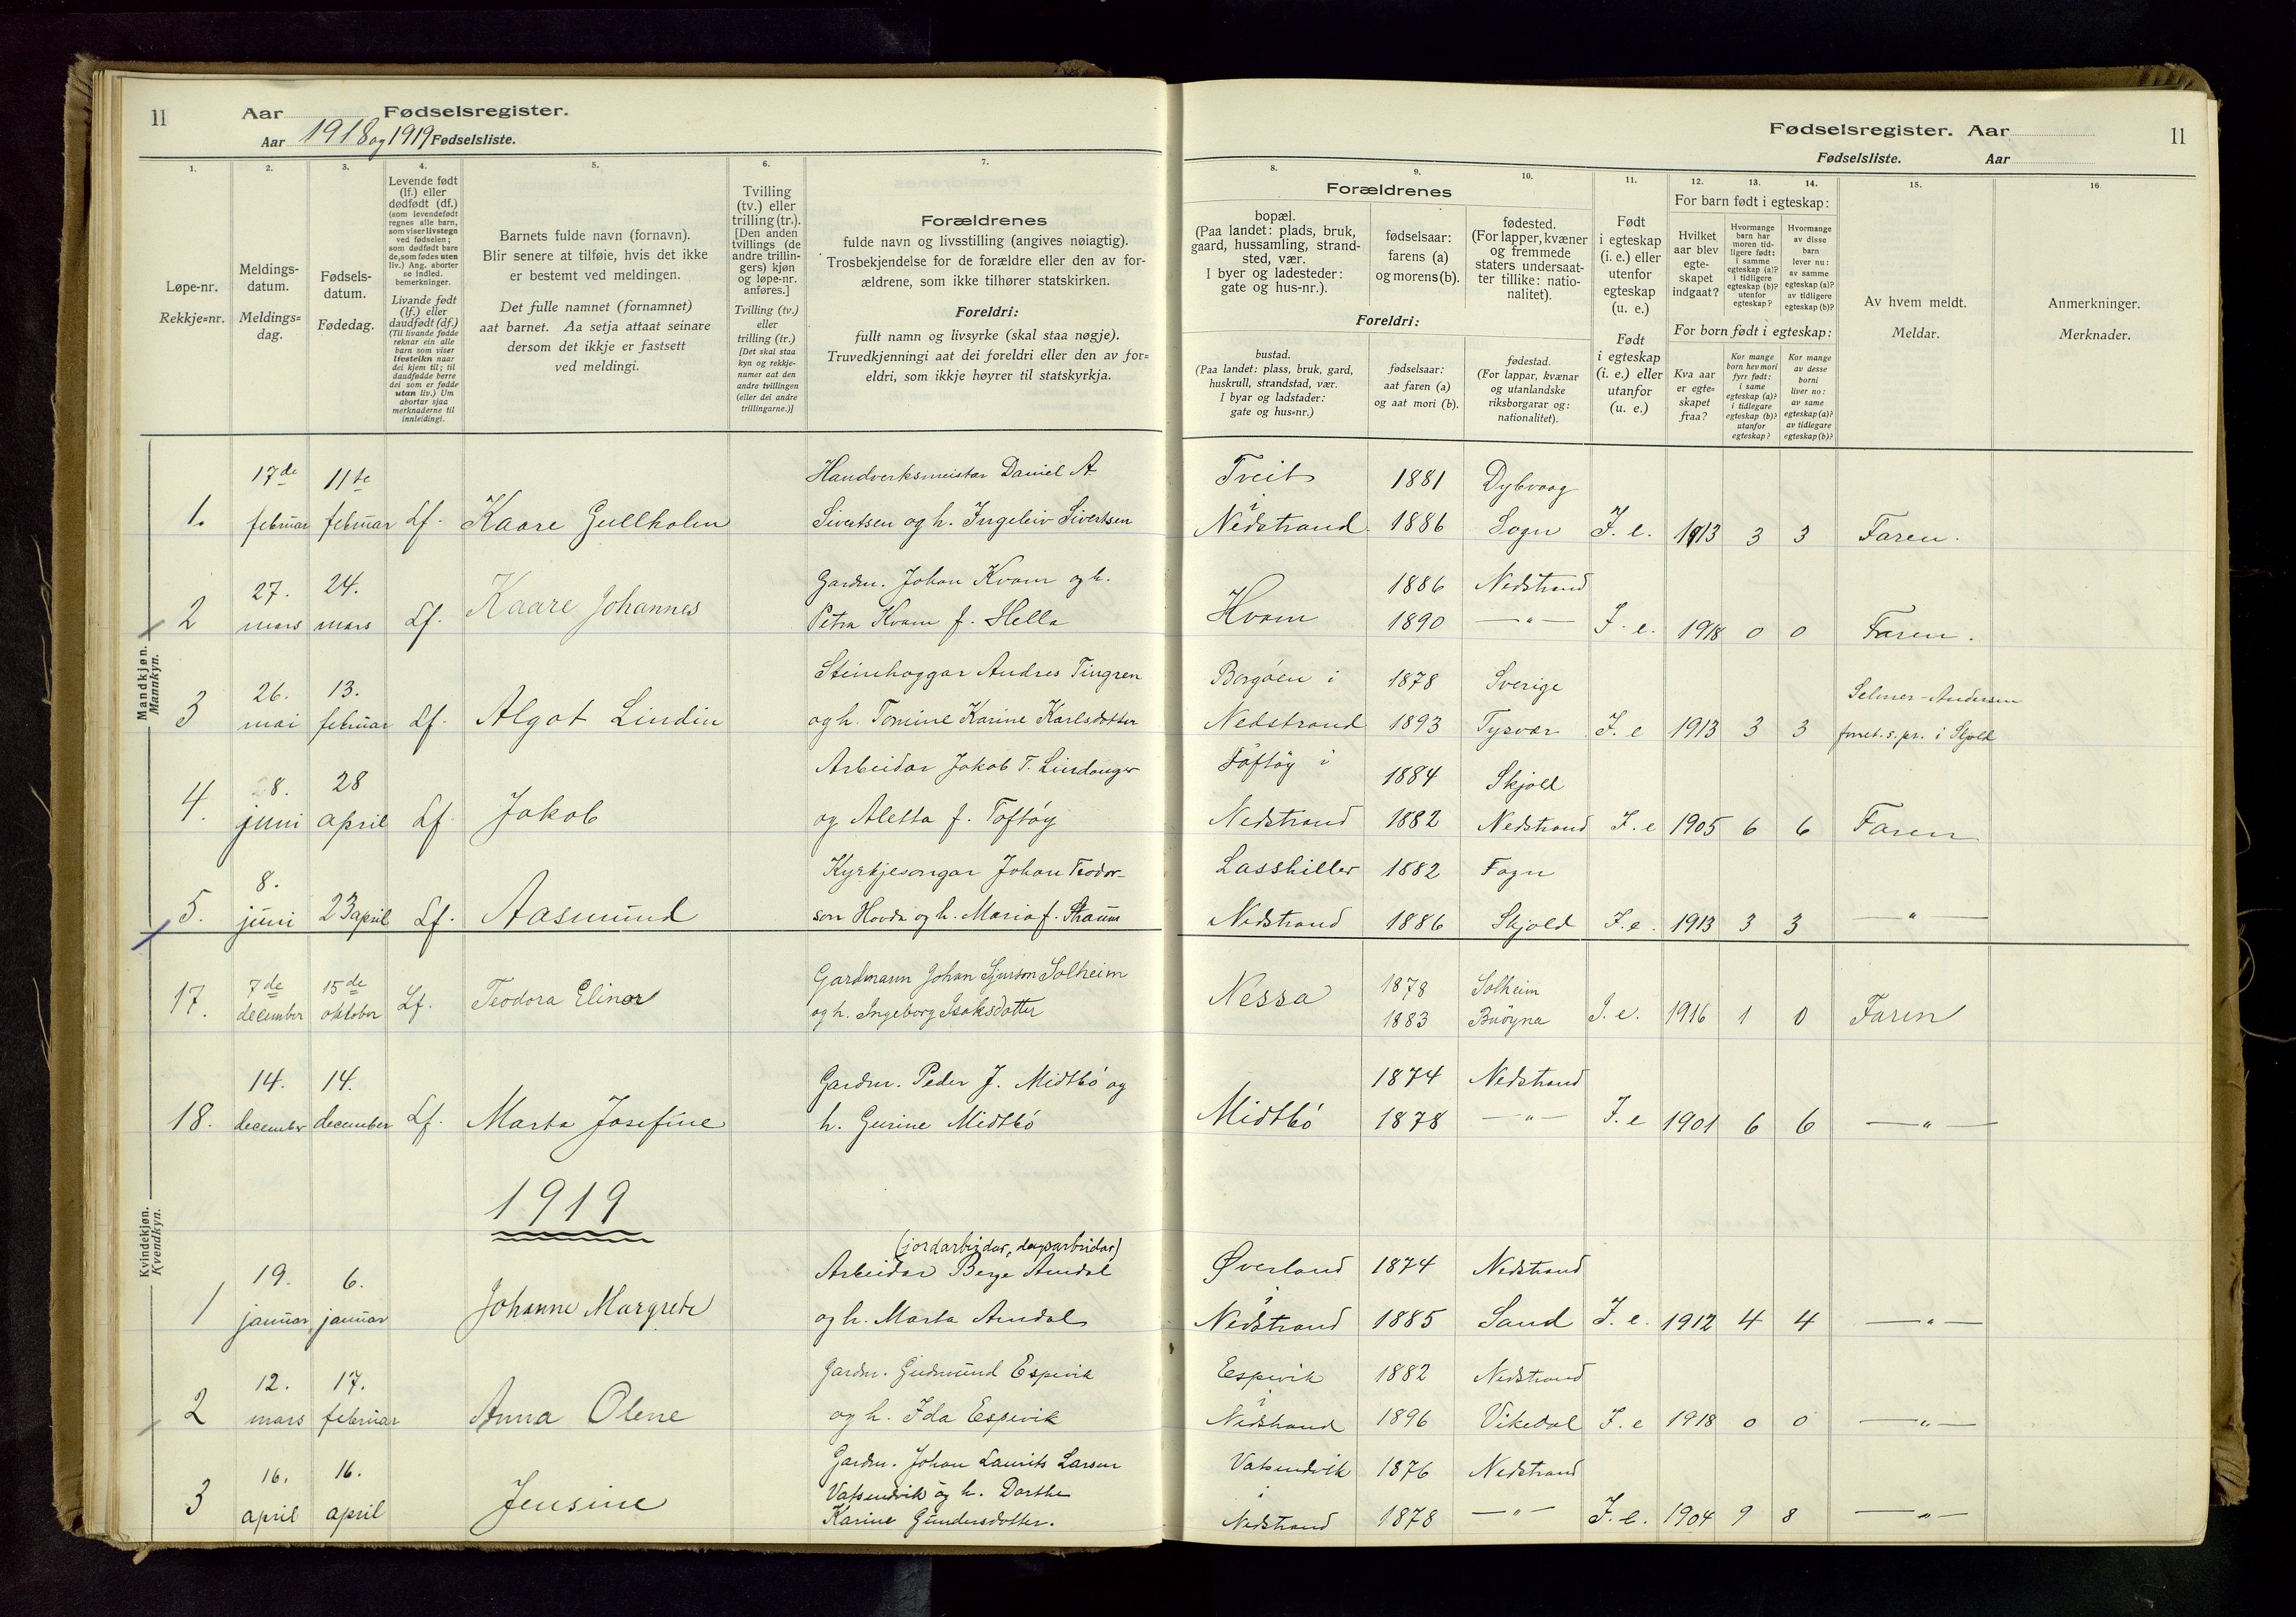 11
Aar Fødselsregister.
Aar 1918 og 1919 Fødselsliste.
Fødselsregister. Aar
11
Fødselsliste. Aar
1.
Løpe-nr.
Rekkje=nr.
2.
Meldings-
datum.
Meldings=
dag.
3.
Fødsels-
datum.
Fødedag.
4.
Levende født
(lf.) eller
dødfødt (df.)
(som levendefødt
regnes alle barn,
som viser livstegn
ved fødselen;
som dødfødt bare
de, som fødes uten
liv.) Ang. aborter
se indled.
bemerkninger.
Livande født
(lf.) eller
daudfødt (df.)
(Til livande fødde
reknar ein alle
barn som viser
livsteikn naar
dei kjem til; til
daudfødde berre
dei som er fødde
utan liv.) Um
abortar sjaa
merknaderne til
innleidingi.
5.
Barnets fulde navn (fornavn).
Blir senere at tilføie, hvis det ikke
er bestemt ved meldingen.
Det fulle namnet (fornamnet)
aat barnet. Aa setja attaat seinare
dersom det ikkje er fastsett
ved meldingi.
6.
Tvilling
(tv.) eller
trilling (tr.).
[Den anden
tvillings (de
andre trillin-
gers) kjøn
og løpe-nr.
anføres.]
Tvilling (tv.)
eller
trilling (tr.)
[Det skal staa
kyn og rekkje-
numer aat den
andre tvillingen
(eller dei andre
trillingarne.)]
7.
Forældrenes
fulde navn og livsstilling (angives nøiagtig).
Trosbekjendelse for de forældre eller den av for-
ældrene, som ikke tilhører statskirken.
Foreldri:
fullt namn og livsyrke (skal staa nøgje).
Truvedkjenningi aat dei foreldri eller den av for=
eldri, som ikkje høyrer til statskyrkja.
Forældrenes
8.
bopæl.
(Paa landet: plads, bruk,
gaard, hussamling, strand-
sted, vær.
I byer og ladesteder:
gate og hus-nr.).
9.
fødselsaar:
farens (a)
og morens (b).
10.
fødested.
(For lapper, kvæner
og fremmede
staters undersaat-
ter tillike: natio-
nalitet).
Foreldri:
bustad.
(Paa landet: plass, bruk, gard,
huskrull, strandstad, vær.
I byar og ladstader:
gate og hus=nr.)
fødselsaar:
aat faren (a)
og aat mori (b).
fødestad.
(For lappar, kvænar
og utanlandske
riksborgarar og:
nationalitet).
11.
Født
i egteskap
(i. e.) eller
utenfor
egteskap
(u. e.)
Født
i egteskap
(i. e.) eller
utanfor
(u. e.)
12. 13. 14.
For barn født i egteskap:
Hvilket
aar blev
egte-
skapet
indgaat?
Hvormange
barn har
moren tid-
ligere født:
i samme
egteskap (a)?
i tidligere
egteskap (b)?
utenfor
egteskap?
Hvormange
av disse
barn
lever nu:
av samme
egteskap (a)?
av tidligere
egteskap (b)?
For born født i egteskap:
Kva aar
er egte=
skapet
fraa?
Kor mange
born hev mori
fyrr født:
i same
egteskap (a)?
i tidlegare
egteskap (b)?
utanfor
egteskap?
Kor mange
av desse
borni
liver no:
av same
egteskap (a)?
av tidlegare
egteskap (b)?
15.
Av hvem meldt.
Meldar.
16.
Anmerkninger.
Merknader.
Mandkjøn.
Mannkyn.
17de 11te Handverksmeistar Daniel A Tveit 1881 Dybvaag
1. februar februar Lf. Kaare Gullholm Sivertsen og h. Ingeleiv Sivertsen i Nedstrand 1886 Sogn I. e. 1913 3 3 Faren.
27. 24. Gardm. Johan Kvam og h. 1886 Nedstrand
2 mars mars Lf. Kaare Johannes Petra Kvam f. Hella Hvam 1890 —"— I. e. 1918 0 0 Faren.
26. 13. Steinhoggar Andres Tingren Borgøen i 1878 Sverige Selmer-Andersen
3 mai februar Lf. Algot Lindin og h. Tomine Karine Karlsdotter Nedstrand 1893 Tysvær I. e 1913 3 3 i Skjold
8. 28 Arbeidar Jakob T. Lindanger Toftøy i 1884 Skjold
4. juni april Lf. Jakob og Aletta f. Toftøy Nedstrand 1882 Nedstrand I. e 1905 6 6 Faren
8. Kyrkjesongar Johan Teodor- Lasshiller 1882 Fogn
5. juni 23 april Lf. Aasmund son Hovda og h. Maria f. Straum Nedstrand 1886 Skjold I. e. 1913 3 3 —"—
Kvindekjøn.
Kvendkyn.
7de 15de Gardmann Johan Sjurson Solheim 1878 Solheim
17. december oktober Lf. Teodora Elinor og h. Ingeborg Isaksdotter Nessa 1883 Buøyna I. e. 1916 1 0 Faren
14. 14. Gardm. Peder J. Midtbö og 1874 Nedstrand
18. december december Lf. Marta Josefine h. Gurine Midtbö Midtbö 1878 —"— I. e 1901 6 6 —"—
1919
(jordarbeidar, dagsarbeidar)
19. 6. Arbeidar Berge Amdal Øverland 1874 Nedstrand
1 januar januar Johanne Margrete og h. Marta Amdal i Nedstrand 1885 Sand I. e. 1912 4 4 —"—
12. 17. Gardm. Gudmund Espevik Espevik 1882 Nedstrand
2 mars februar Anna Olene og h. Ida Espevik i Nedstrand 1896 Vikedal I. e 1918 0 0 —"—
16. 16. Gardm. Johan Laurits Larsen Vatsendvik 1876 Nedstrand
Vatsendvik og h. Dorthe i
3 april april Jensine Karine Gundersdotter. Nedstrand 1878 —"— I. e. 1904 9 8 —"—